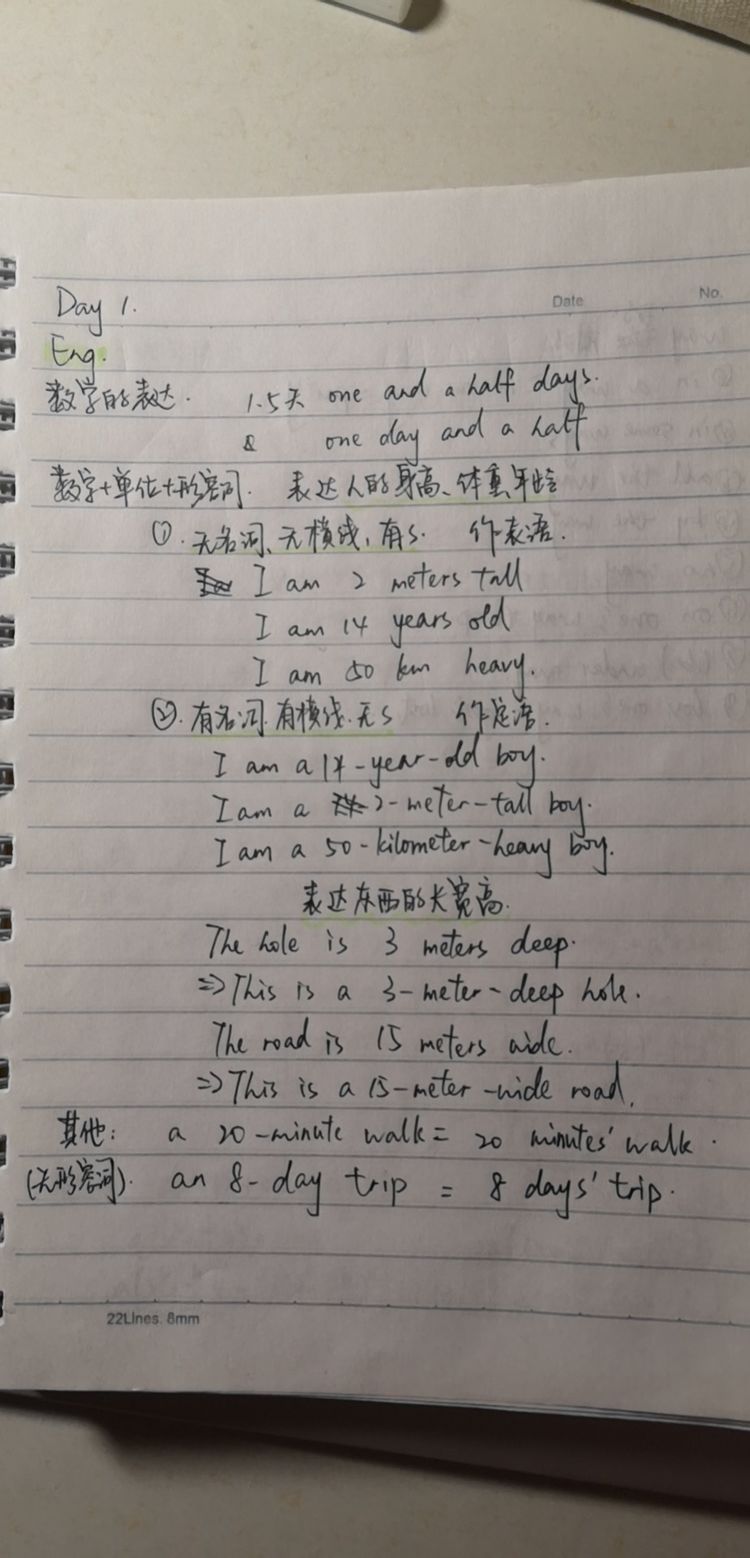 Date No.
Day 1.
Eng.
数字的表达. 1.5天 one and a half days.
& one day and a half
数字+单位+形容词. 表达人的身高、体重、年龄
①. 无名词、无横线,有s. 作表语.
I am 2 meters tall
I am 14 years old
I am 50 km heavy.
②. 有名词.有横线.无s 作定语.
I am a 14-year-old boy.
I am a 2-meter-tall boy.
I am a 50-kilometer-heavy boy.
表达东西的长宽高.
The hole is 3 meters deep.
⇒This is a 3-meter-deep hole.
The road is 15 meters wide.
⇒This is a 15-meter-wide road.
其他: a 20-minute walk = 20 minutes' walk.
(无形容词). an 8-day trip = 8 days' trip.
22Lines. 8mm